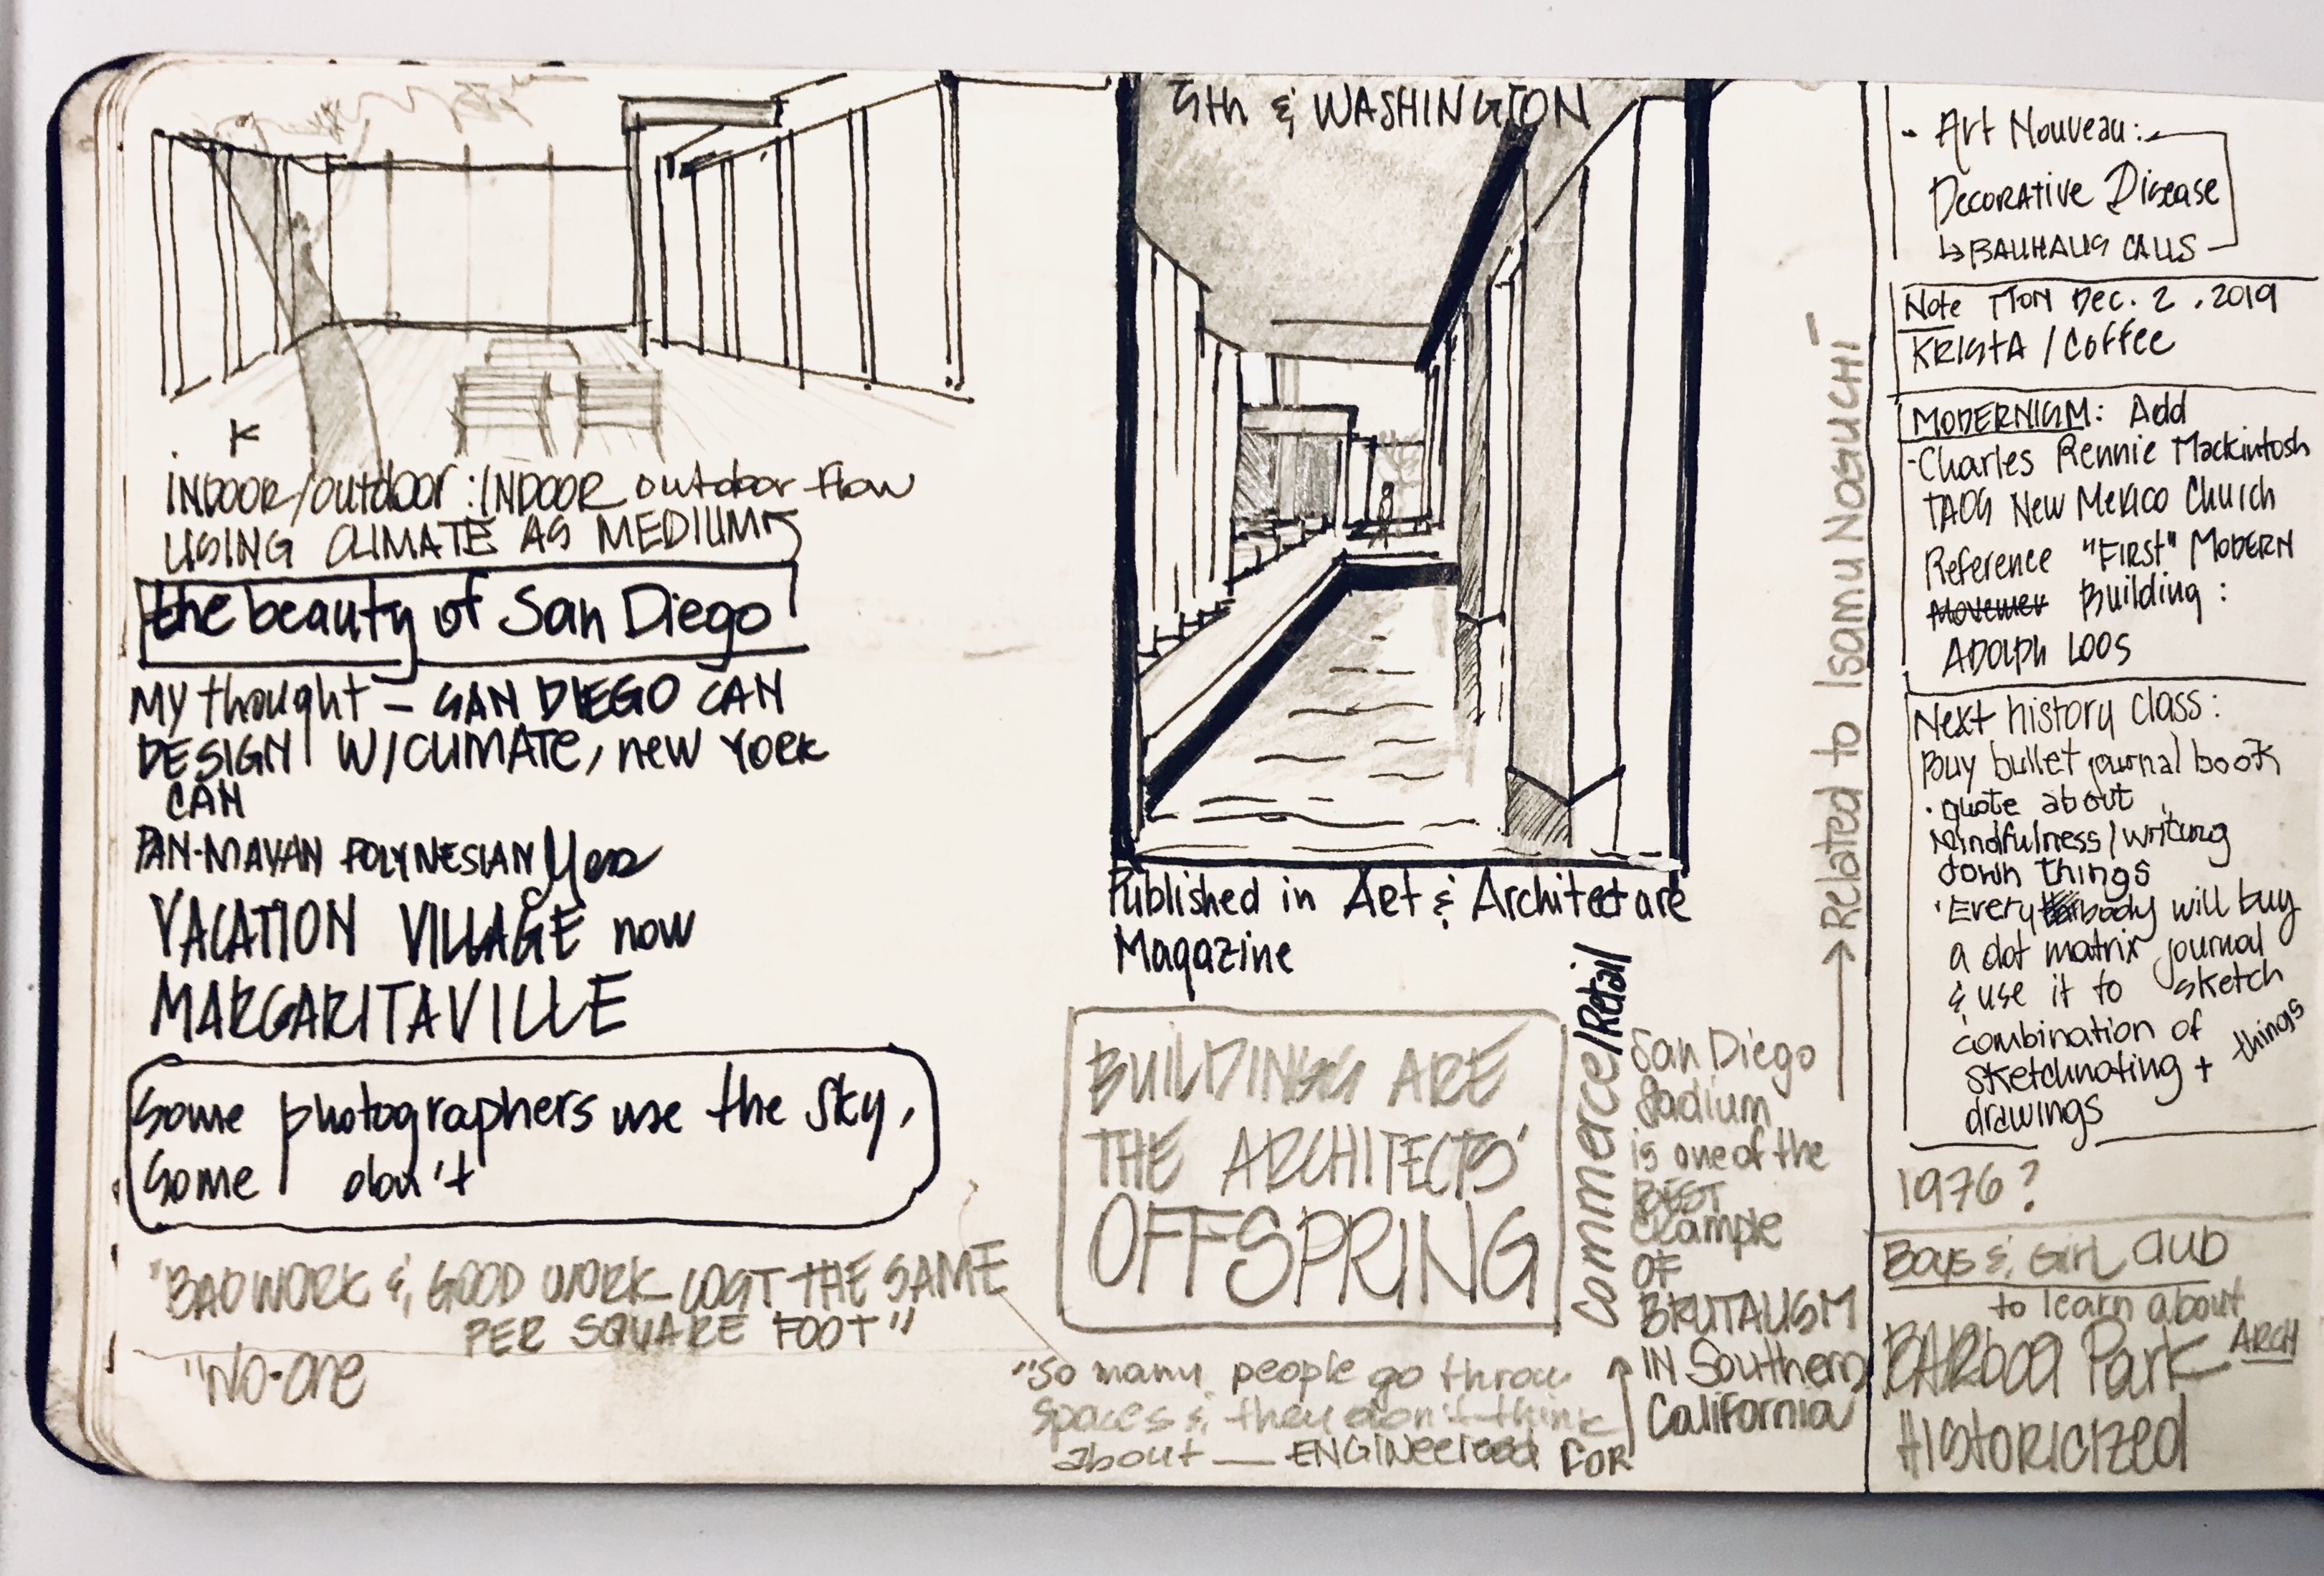 INDOOR/outdoor : INDOOR outdoor flow
USING CLIMATE AS MEDIUM
the beauty of San Diego
My thought – SAN DIEGO CAN
DESIGN W/CLIMATE, new YORK
CAN
PAN-MAYAN POLYNESIAN
VACATION VILLAGE now
MARGARITAVILLE
Some photographers use the sky,
Some don't
"BAD WORK & GOOD WORK COST THE SAME
PER SQUARE FOOT"
"No-one
5th & WASHINGTON
Published in Art & Architectare
Magazine
BUILDINGS ARE
THE ARCHITECTS'
OFFSPRING
"So many people go throu
spaces & they don't think
about — ENGINeeried FOR
Commerce/Retail
San Diego
Sadium
is one of the
BEST
example
OF
BRUTALISM
IN Southern
California
Related to Isamu Noguchi
- Art Nouveau:
Decorative Disease
↳ BAUHAUS CALLS
Note MON Dec. 2, 2019
KRISTA / Coffee
MODERNISM: Add
-Charles Rennie Mackintosh
TAOS New Mexico Church
Reference "First" MODERN
Movemen Building :
ADOLPH LOOS
Next history class:
Buy bullet journal book
• quote about
Mindfulness/writing
down things
• Everybody will buy
a dot matrix journal
& use it to sketch
things
combination of
sketchnoting +
drawings
1976?
Boys & Girl Club
to learn about
BARboa Park ARCH
HISTORICIZED